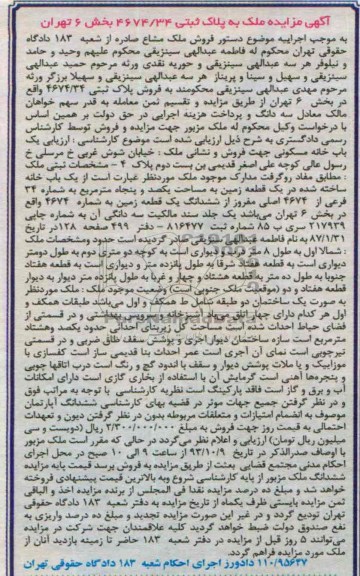 آگهی مزایده ملک به پلاک ثبتی ۴۶۷۴/۳۴ بخش ۶ تهران
به موجب اجراییه موضوع دستور فروش ملک مشاع صادره از شعبه ۱۸۳ دادگاه
حقوقی تهران محکوم له فاطمه عبدالهی سینتزیقی محکوم علیهم وحید و حامد
و نیلوفر هر سه عبدالهی سینتزیقی و حوریه نقدی ورثه مرحوم حمید عبدالهی
سینتزیقی و سهیل و سینا و پریناز هر سه عبدالهی سینتزیقی و سهیلا برزگر ورثه
مرحوم مهدی عبدالهی سینتزیقی محکومند به فروش پلاک ثبتی ۴۶۷۴/۳۴ واقع
در بخش ۶ تهران از طریق مزایده و تقسیم ثمن معامله به قدر سهم خواهان
مالک معادل سه دانگ و پرداخت هزینه اجرایی در حق دولت بر همین اساس
با درخواست وکیل محکوم له ملک مزبور جهت مزایده و فروش توسط کارشناس
رسمی دادگستری به شرح ذیل ارزیابی شده است موضوع کارشناسی : ارزیابی یک
باب خانه مسکونی جهت فروش و نشانی ملک : خیابان شوش غربی خ مرسلی خ
رسول عالی کوچه علی اصغر قدیمی بن بست دوم پلاک ۴ – مشخصات ثبتی ملک
: مطابق مفاد روگرفت مدارک موجود ملک موردنظر عبارت است از یک باب خانه
ساخته شده در یک قطعه زمین به مساحت یکصد و پنجاه مترمربع به شماره ۳۴
فرعی از ۴۶۷۴ اصلی مفروز از ششدانگ یک قطعه زمین به شماره ۴۶۷۴ واقع
در بخش ۶ تهران می‌باشد یک جلد سند مالکیت سه دانگی آن به شماره چاپی
۲۱۷۹۳۹ سری ب ۸۵ شماره ثبت ۸۱۶۴۷۷ – دفتر ۴۹۹ صفحه ۱۲۸ در تاریخ
۸۷/۱/۳۱ به نام فاطمه عبدالهی سینتزیقی صادر گردیده است حدود ومشخصات ملک
: شمالا اول به طول ۸ متر درب و دیواری است به کوچه دو متری دوم به طول دومتر
دیواری است به قطعه هفتاد شرقا به طول پانزده متر و دیواری است به قطعه هفتاد
جنوبا به طول ده متر به قطعه هشتاد و چهار و غربا به طول پانزده متر دیوار به دیوار
قطعه هفتاد و دو (موقعیت ملک جنوبی است) وضعیت موجود ملک : ملک موردنظر
به صورت یک ساختمان دو طبقه شامل ط همکف و اول می‌باشد طبقات همکف و
اول هر کدام دارای چهار اتاق به انضمام آشپزخانه و سرویس بهداشتی و در قسمتی از
فضای حیاط احداث شده است مساحت کل زیربنای احداثی حدود یکصد وهشتاد
مترمربع است سازه ساختمان دیوار آجری و پوشش سقف طاق ضربی و در قسمتی
تیرچوبی است نمای آن آجری است عمر احداث بنا قدیمی ساز است کفسازی با
موزاییک و یا ملات پوشش دیوار و سقف با اندود گچ و رنگ است درب اتاقها چوبی
و پنجره‌ها آهنی است گرمایش آن با استفاده از بخاری گازی است دارای امکانات
آب و برق و گاز است فاقد پارکینگ است نظریه کارشناسی با توجه به مراتب فوق
و در نظر گرفتن جمیع جهات موثر در قضیه بهای کارشناسی ششدانگ آپارتمان
موصوف به انضمام امتیازات و متعلقات مربوطه بدون در نظر گرفتن دیون و تعهدات
احتمالی به قیمت روز جهت فروش به مبلغ ۲/۳۰۰/۰۰۰/۰۰۰ ریال (دویست و سی
میلیون ریال تومان) ارزیابی و اعلام نظر می‌گردد در حالی که مقرر است ملک مزبور
با اوصاف صدرالذکر در تاریخ ۹۳/۱۰/۹ از ساعت ۹ الی ۱۰ صبح در محل اجرای
احکام مدنی مجتمع قضایی بعثت از طریق مزایده به فروش برسد قیمت پایه مزایده
ششدانگ ملک مزبور از پایه کارشناسی شروع وبه بالاترین قیمت پیشنهادی فروخته
خواهد شد و مبلغ ده درصد مزایده نقدا فی المجلس از برنده مزایده اخذ و الباقی
ثمن مزایده بایستی ظرف یکماه از تاریخ مزایده به دفتر شعبه ۱۸۳ دادگاه حقوقی
تهران تودیع گردد و در غیر این صورت مزایده تجدید و مبلغ ده درصد واریزی به
نفع صندوق دولت ضبط خواهد گردید کلیه علاقمندان جهت شرکت در مزایده
می‌توانند ۵ روز قبل از مزایده در دفتر شعبه ۱۸۳ حاضر تا زمینه بازدید آنان از
ملک مورد مزایده فراهم گردد.
۱۱۰/۹۵۶۲۷ دادورز اجرای احکام شعبه ۱۸۳ دادگاه حقوقی تهران